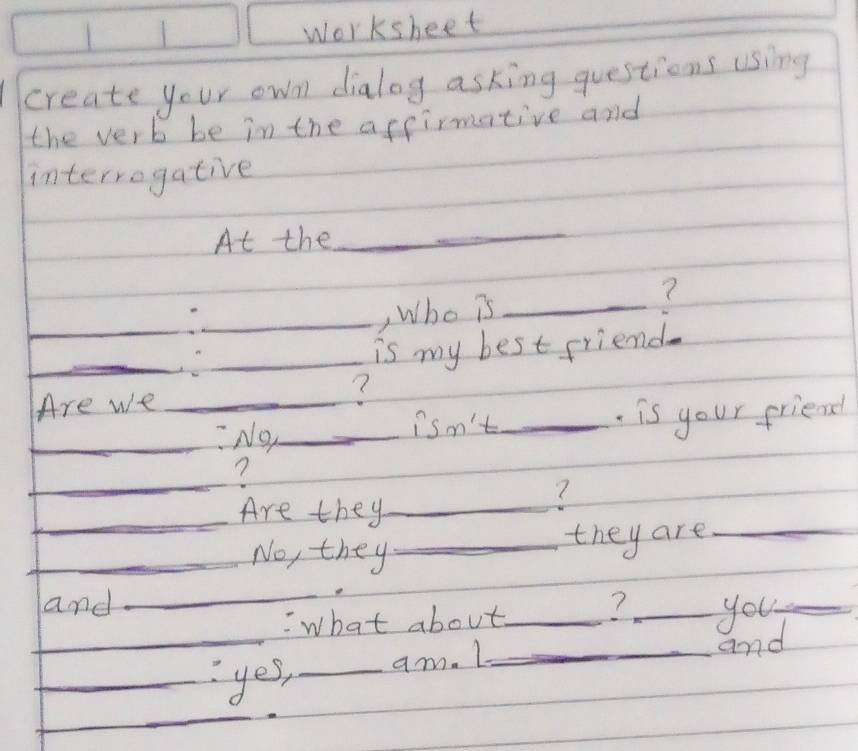 Worksheet
1 create your own dialog asking questions using
the verb be in the affirmative and
interrogative
At the ______
______:______, Who is ______?
______:______ is my best friend.
Are we ______?
______: No, ______ isn't ______. is your friend
______?
______ Are they ______?
______ No, they ______ they are ______
and ______.
______: what about ______? ____ you ____
______: yes, ____ am. I ______ and
______.